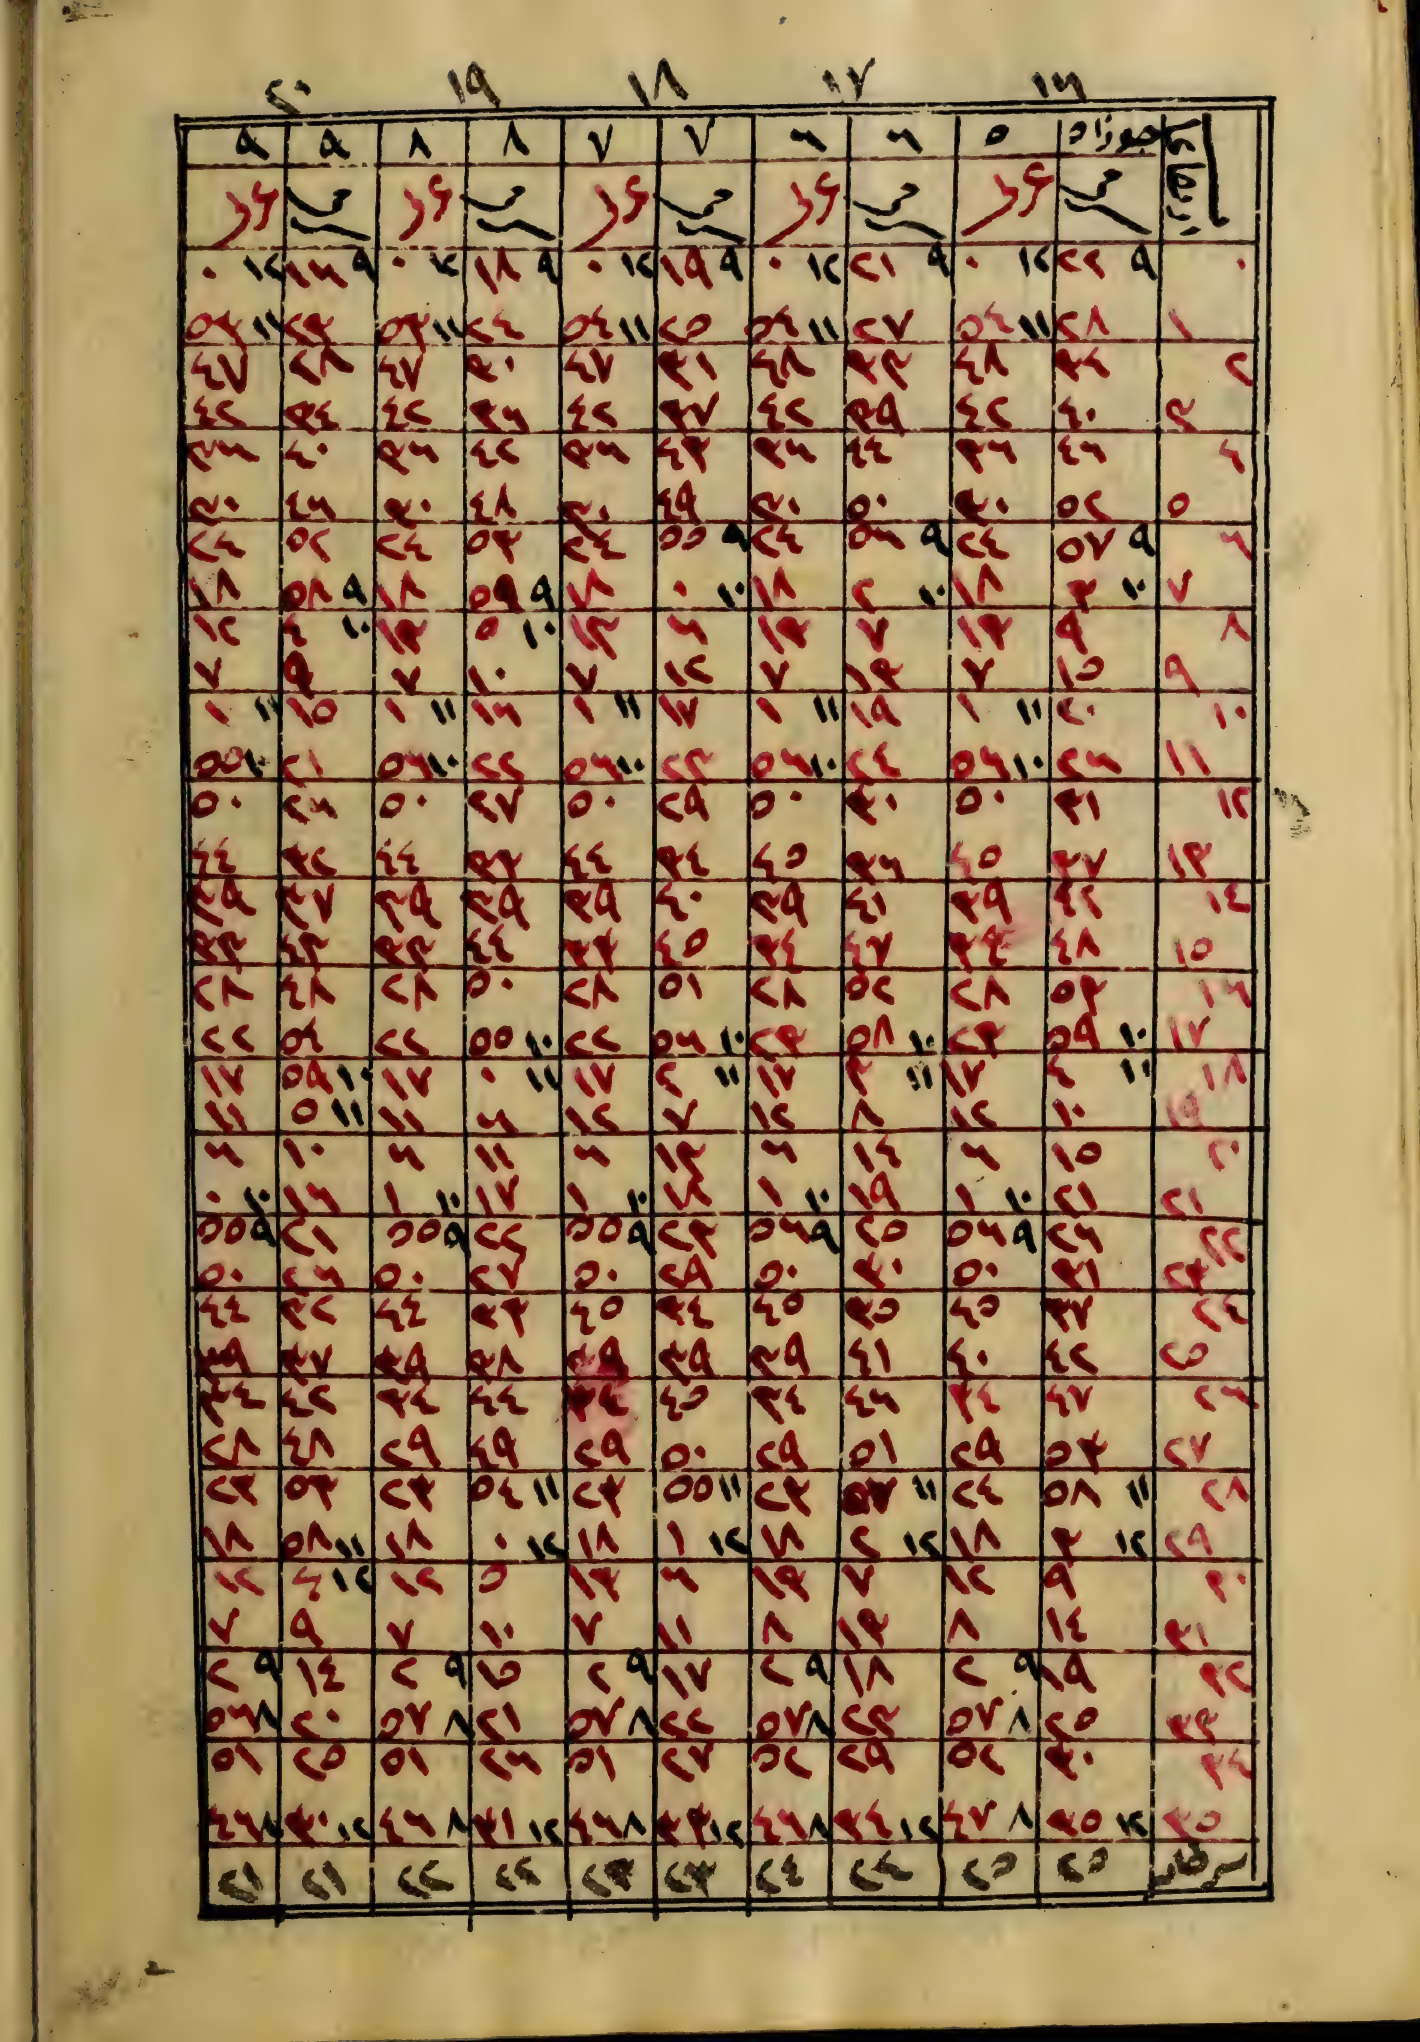 ١٦ ١٧ ١٨ ١٩ ٢٠
جوزاء ٥ ٦ ٦ ٧ ٧ ٨ ٨ ٩ ٩
٠ ٩ ٢٢ ١٢ ٠ ٩ ٢١ ١٢ ٠ ٩ ١٩ ١٢ ٠ ٩ ١٨ ١٢ ٠ ٩ ١٦ ١٢ ٠
١ ٢٨ ١١ ٥٤ ٢٧ ١١ ٥٤ ٢٥ ١١ ٥٤ ٢٤ ١١ ٥٣ ٢٣ ١١ ٥٣
٢ ٣٤ ٤٨ ٣٣ ٤٨ ٣١ ٤٧ ٣٠ ٤٧ ٢٨ ٤٧
٣ ٤٠ ٤٢ ٣٩ ٤٢ ٣٧ ٤٢ ٣٦ ٤٢ ٣٤ ٤٢
٤ ٤٦ ٣٦ ٤٤ ٣٦ ٤٣ ٣٦ ٤٢ ٣٦ ٤٠ ٣٦
٥ ٥٢ ٣٠ ٥٠ ٣٠ ٤٩ ٣٠ ٤٨ ٣٠ ٤٦ ٣٠
٦ ٩ ٥٧ ٢٤ ٩ ٥٦ ٢٤ ٩ ٥٥ ٢٤ ٥٣ ٢٤ ٥٢ ٢٤
٧ ١٠ ٣ ١٨ ١٠ ٢ ١٨ ١٠ ٠ ١٨ ٩ ٥٩ ١٨ ٩ ٥٨ ١٨
٨ ٩ ١٣ ٧ ١٣ ٦ ١٣ ١٠ ٥ ١٣ ١٠ ٤ ١٢
٩ ١٥ ٧ ١٣ ٧ ١٢ ٧ ١٠ ٧ ٩ ٧
١٠ ٢٠ ١١ ١ ١٩ ١١ ١ ١٧ ١١ ١ ١٦ ١١ ١ ١٥ ١١ ١
١١ ٢٦ ١٠ ٥٦ ٢٤ ١٠ ٥٦ ٢٣ ١٠ ٥٦ ٢٢ ١٠ ٥٦ ٢١ ١٠ ٥٥
١٢ ٣١ ٥٠ ٣٠ ٥٠ ٢٩ ٥٠ ٢٧ ٥٠ ٢٦ ٥٠
١٣ ٣٧ ٤٥ ٣٦ ٤٥ ٣٤ ٤٤ ٣٣ ٤٤ ٣٢ ٤٤
١٤ ٤٢ ٣٩ ٤١ ٣٩ ٤٠ ٣٩ ٣٩ ٣٩ ٣٧ ٣٩
١٥ ٤٨ ٣٤ ٤٧ ٣٤ ٤٥ ٣٣ ٤٤ ٣٣ ٤٣ ٣٣
١٦ ٥٣ ٢٨ ٥٢ ٢٨ ٥١ ٢٨ ٥٠ ٢٨ ٤٨ ٢٨
١٧ ١٠ ٥٩ ٢٣ ١٠ ٥٨ ٢٣ ١٠ ٥٦ ٢٢ ١٠ ٥٥ ٢٢ ٥٤ ٢٢
١٨ ١١ ٤ ١٧ ١١ ٣ ١٧ ١١ ٢ ١٧ ١١ ٠ ١٧ ١٠ ٥٩ ١٧
١٩ ١٠ ١٢ ٨ ١٢ ٧ ١٢ ٦ ١١ ١١ ٥ ١١
٢٠ ١٥ ٦ ١٤ ٦ ١٣ ٦ ١١ ٦ ١٠ ٦
٢١ ٢١ ١٠ ١ ١٩ ١٠ ١ ١٨ ١٠ ١ ١٧ ١٠ ١ ١٦ ١٠ ٠
٢٢ ٢٦ ٩ ٥٦ ٢٥ ٩ ٥٦ ٢٣ ٩ ٥٥ ٢٢ ٩ ٥٥ ٢١ ٩ ٥٥
٢٣ ٣١ ٥٠ ٣٠ ٥٠ ٢٩ ٥٠ ٢٧ ٥٠ ٢٦ ٥٠
٢٤ ٣٧ ٤٥ ٣٥ ٤٥ ٣٤ ٤٥ ٣٣ ٤٤ ٣٢ ٤٤
٢٥ ٤٢ ٤٠ ٤١ ٣٩ ٣٩ ٣٩ ٣٨ ٣٩ ٣٧ ٣٩
٢٦ ٤٧ ٣٤ ٤٦ ٣٤ ٤٥ ٣٤ ٤٤ ٣٤ ٤٢ ٣٤
٢٧ ٥٣ ٢٩ ٥١ ٢٩ ٥٠ ٢٩ ٤٩ ٢٩ ٤٨ ٢٨
٢٨ ١١ ٥٨ ٢٤ ١١ ٥٧ ٢٣ ١١ ٥٥ ٢٣ ١١ ٥٤ ٢٣ ٥٣ ٢٣
٢٩ ١٢ ٣ ١٨ ١٢ ٢ ١٨ ١٢ ١ ١٨ ١٢ ٠ ١٨ ١١ ٥٨ ١٨
٣٠ ٩ ١٢ ٧ ١٣ ٦ ١٣ ٥ ١٢ ١٢ ٤ ١٢
٣١ ١٤ ٨ ١٣ ٨ ١١ ٧ ١٠ ٧ ٩ ٧
٣٢ ١٩ ٩ ٢ ١٨ ٩ ٢ ١٧ ٩ ٢ ١٥ ٩ ٢ ١٤ ٩ ٢
٣٣ ٢٥ ٨ ٥٧ ٢٣ ٨ ٥٧ ٢٢ ٨ ٥٧ ٢١ ٨ ٥٧ ٢٠ ٨ ٥٦
٣٤ ٣٠ ٥٢ ٢٩ ٥٢ ٢٧ ٥١ ٢٦ ٥١ ٢٥ ٥١
٣٥ ١٢ ٣٥ ٨ ٤٧ ١٢ ٣٤ ٨ ٤٦ ١٢ ٣٣ ٨ ٤٦ ١٢ ٣١ ٨ ٤٦ ١٢ ٣٠ ٨ ٤٦
سرطان ٢٥ ٢٥ ٢٤ ٢٤ ٢٣ ٢٣ ٢٢ ٢٢ ٢١ ٢١